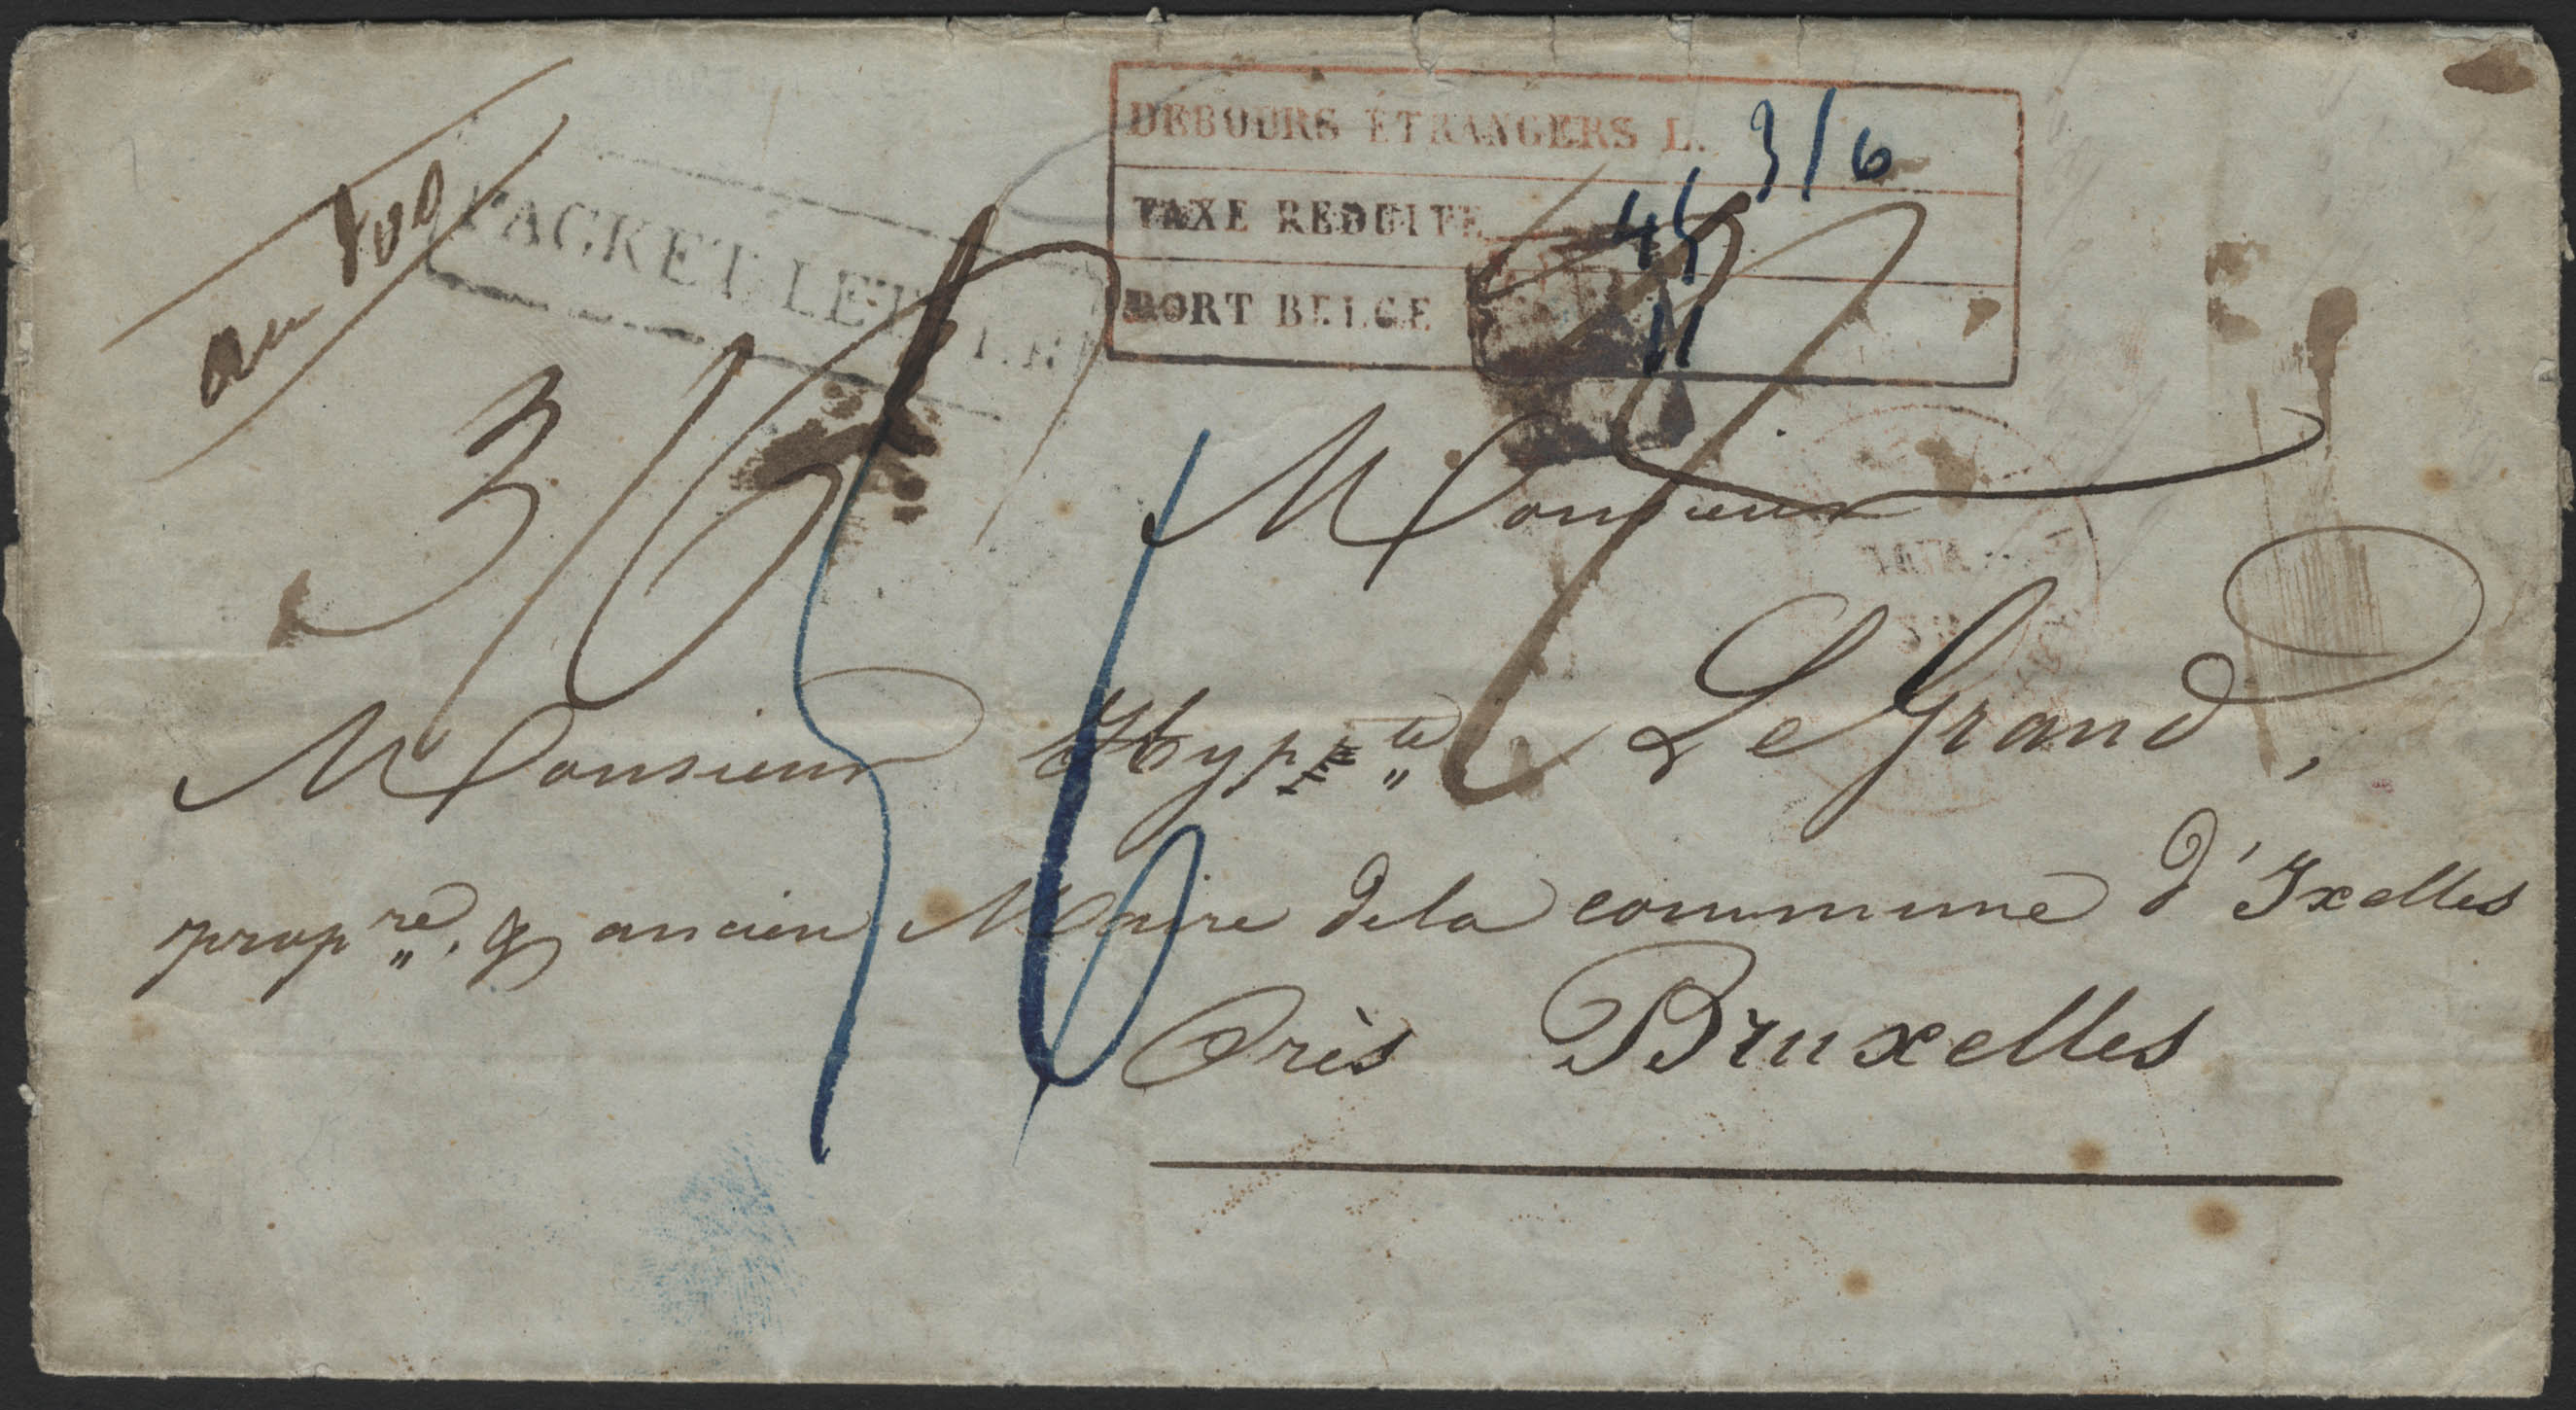 DEBOURS ETRANGERS L. 3/6
TAXE REDUITE 45
PORT BELGE 11
PACKET LETTER
3/6
56
Monsieur
Monsieur Hyp.te LeGrand,
prop.re, & ancien Maire de la commune d'Ixelles
Près Bruxelles